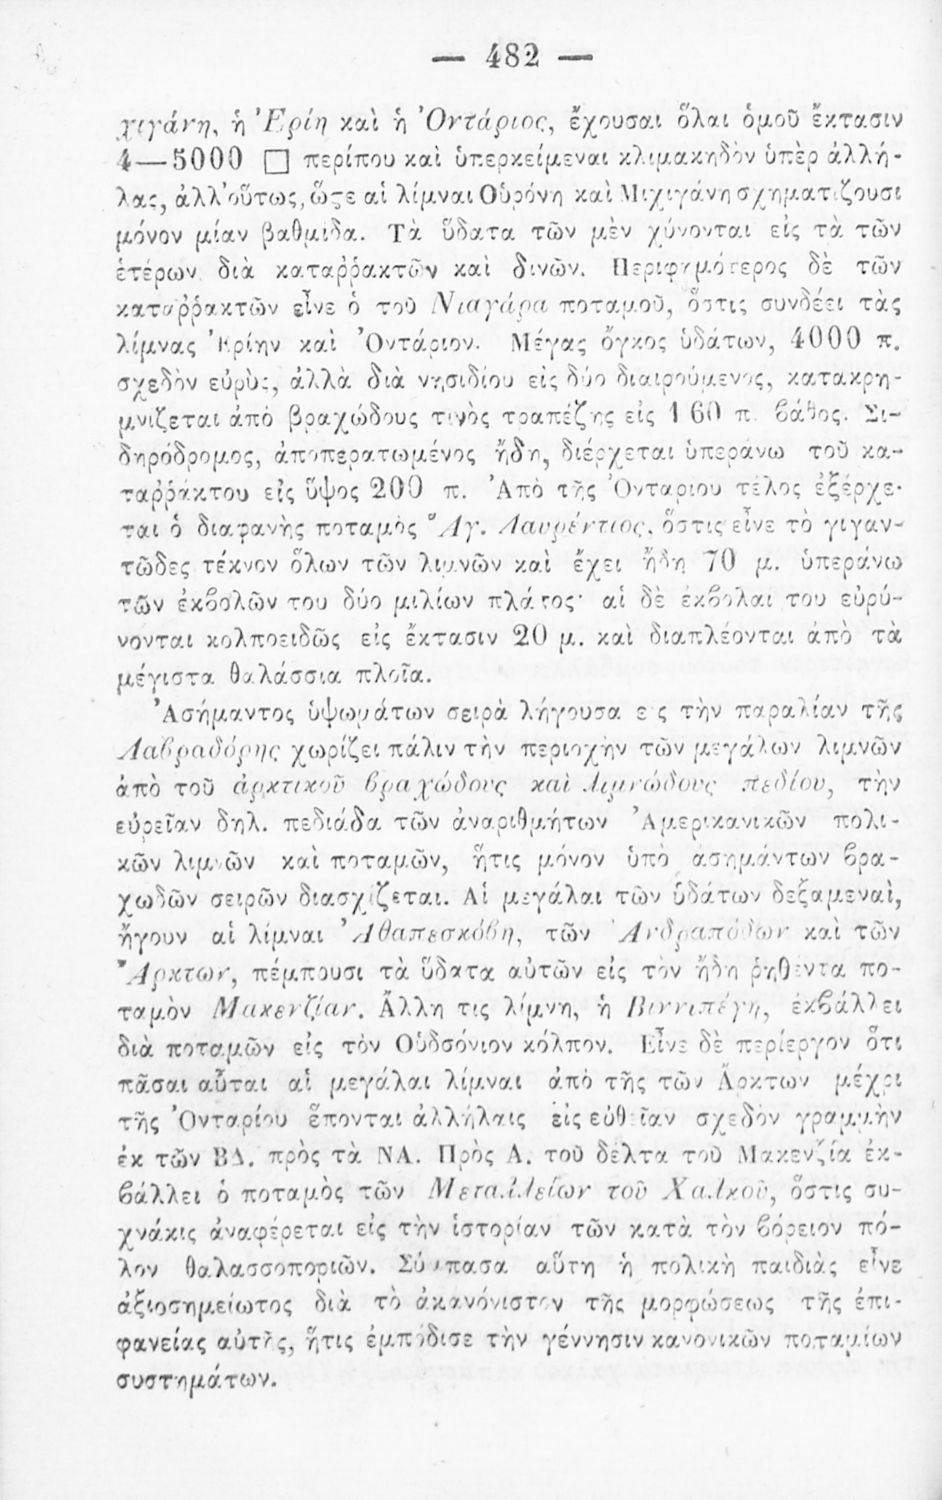 — 482 —
χιγάνη, ἡ Ἐρίη καὶ ἡ Ὀντάριος, ἔχουσαι ὅλαι ὁμοῦ ἔκτασιν
4—5000 □ περίπου καὶ ὑπερκείμεναι κλιμακηδὸν ὑπὲρ ἀλλή-
λας, ἀλλ'οὕτως, ὥςε αἱ λίμναι Οὑρόνη καὶ Μιχιγάνη σχηματίζουσι
μόνον μίαν βαθμιδα. Τὰ ὕδατα τῶν μὲν χύνονται εἰς τὰ τῶν
ἑτέρων διὰ καταῤῥακτῶν καὶ δινῶν. Περιφημότερος δὲ τῶν
καταῤῥακτῶν εἶνε ὁ τοῦ Νιαγάρα ποταμοῦ, ὅστις συνδέει τὰς
λίμνας Ἐρίην καὶ Ὀντάριον. Μέγας ὄγκος ὑδάτων, 4000 π.
σχεδὸν εὐρὺς, ἀλλὰ διὰ νησιδίου εἰς δύο διαιρούμενος, κατακρη-
μνίζεται ἀπὸ βραχώδους τινὸς τραπέζης εἰς 160 π. βάθος. Σι-
δηρόδρομος, ἀποπερατωμένος ἤδη, διέρχεται ὑπεράνω τοῦ κα-
ταῤῥάκτου εἰς ὕψος 200 π. Ἀπὸ τῆς Ὀνταρίου τέλος ἐξέρχε-
ται ὁ διαφανὴς ποταμὸς Ἅγ. Λαυρέντιος, ὅστις εἶνε τὸ γιγαν-
τῶδες τέκνον ὅλων τῶν λιμνῶν καὶ ἔχει ἤδη 70 μ. ὑπεράνω
τῶν ἐκβολῶν του δύο μιλίων πλάτος· αἱ δὲ ἐκβολαί του εὐρύ-
νονται κολποειδῶς εἰς ἔκτασιν 20 μ. καὶ διαπλέονται ἀπὸ τὰ
μέγιστα θαλάσσια πλοῖα.
Ἀσήμαντος ὑψωμάτων σειρὰ λήγουσα εἰς τὴν παραλίαν τῆς
Λαβραδόρης χωρίζει πάλιν τὴν περιοχὴν τῶν μεγάλων λιμνῶν
ἀπὸ τοῦ ἀρκτικοῦ βραχώδους καὶ λιμνώδους πεδίου, τὴν
εὐρεῖαν δηλ. πεδιάδα τῶν ἀναριθμήτων Ἀμερικανικῶν πολι-
κῶν λιμνῶν καὶ ποταμῶν, ἥτις μόνον ὑπὸ ἀσημάντων βρα-
χωδῶν σειρῶν διασχίζεται. Αἱ μεγάλαι τῶν ὑδάτων δεξαμεναὶ,
ἤγουν αἱ λίμναι Ἀθαπεσκόβη, τῶν Ἀνδραπόδων καὶ τῶν
Ἄρκτων, πέμπουσι τὰ ὕδατα αὐτῶν εἰς τὸν ἤδη ῥηθέντα πο-
ταμὸν Μακενζίαν. Ἄλλη τις λίμνη, ἡ Βιννιπέγη, ἐκβάλλει
διὰ ποταμῶν εἰς τὸν Οὑδσόνιον κόλπον. Εἶνε δὲ περίεργον ὅτι
πᾶσαι αὗται αἱ μεγάλαι λίμναι ἀπὸ τῆς τῶν Ἄρκτων μέχρι
τῆς Ὀνταρίου ἕπονται ἀλλήλαις εἰς εὐθεῖαν σχεδὸν γραμμὴν
ἐκ τῶν ΒΔ. πρὸς τὰ ΝΑ. Πρὸς Α. τοῦ δέλτα τοῦ Μακενζία ἐκ-
βάλλει ὁ ποταμὸς τῶν Μεταλλείων τοῦ Χαλκοῦ, ὅστις συ-
χνάκις ἀναφέρεται εἰς τὴν ἱστορίαν τῶν κατὰ τὸν βόρειον πό-
λον θαλασσοποριῶν. Σύμπασα αὕτη ἡ πολικὴ παιδιὰς εἶνε
ἀξιοσημείωτος διὰ τὸ ἀκανόνιστον τῆς μορφώσεως τῆς ἐπι-
φανείας αὐτῆς, ἥτις ἐμπόδισε τὴν γέννησιν κανονικῶν ποταμίων
συστημάτων.